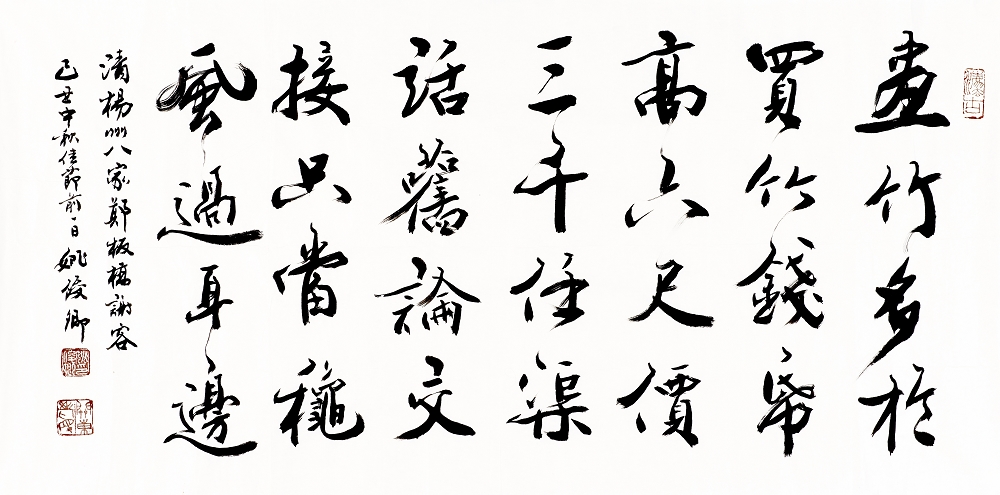 畫竹多於
買竹錢帋
高六尺價
三千任渠
話舊論交
接只當穐
風過耳邊
清楊州八家鄭板橋謝客
己丑中秋佳節前一日姚俊卿